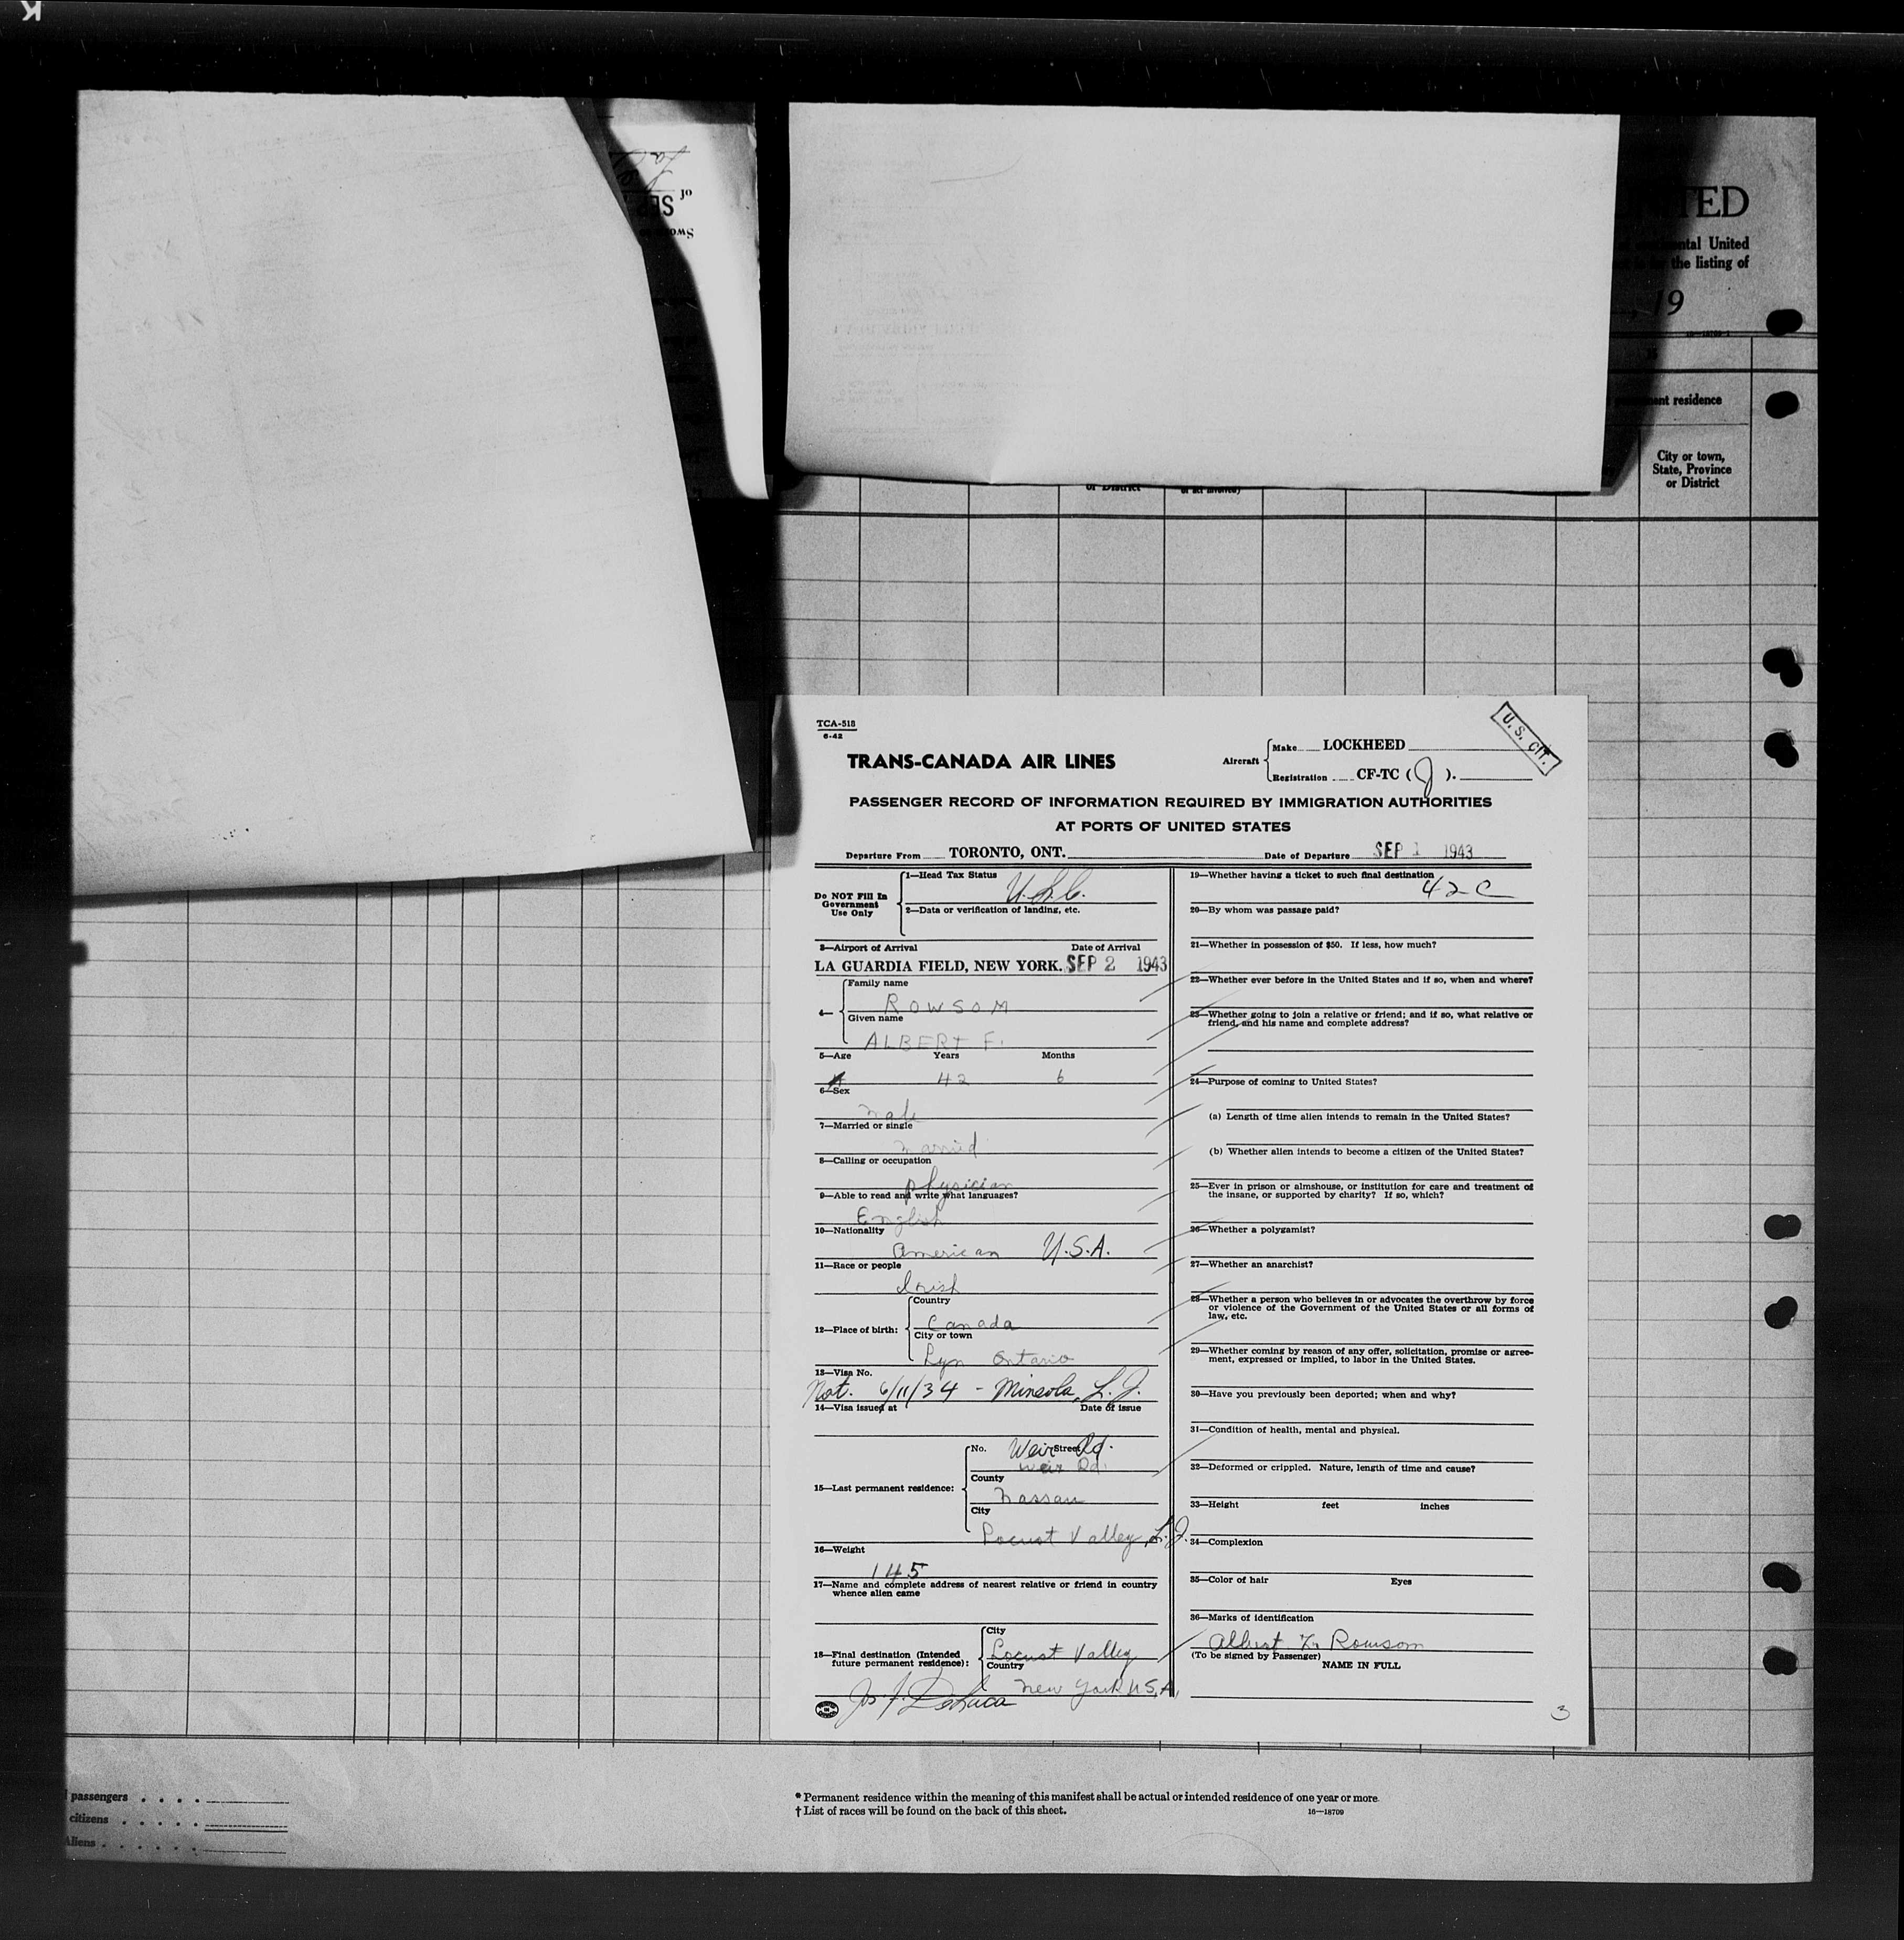 K
of
SEP
Swo
ITED
ental United
the listing of
19
residence
City or town,
State, Province
or District
or District
TCA-518
6-42
TRANS-CANADA AIR LINES
Aircraft
Make LOCKHEED
Registration CF-TC ( J ).
U. S. CIT.
PASSENGER RECORD OF INFORMATION REQUIRED BY IMMIGRATION AUTHORITIES
AT PORTS OF UNITED STATES
Departure From TORONTO, ONT.
Date of Departure SEP 1 1943
Do NOT Fill In
Government
Use Only
1—Head Tax Status
2—Data or verification of landing, etc.
3—Airport of Arrival Date of Arrival
LA GUARDIA FIELD, NEW YORK. SEP 2 1943
4—
Family name
ROWSOM
Given name
ALBERT F.
5—Age Years Months
42 6
6—Sex
Male
7—Married or single
Married
8—Calling or occupation
Physician
9—Able to read and write what languages?
English
10—Nationality
American U.S.A.
11—Race or people
Irish
12—Place of birth:
Country
Canada
City or town
Lyn Ontario
13—Visa No.
Nat. 6/11/34 - Mineola, L.I.
14—Visa issued at Date of issue
15—Last permanent residence:
No. Street
Weir Rd.
Weir Rd.
County
Nassau
City
Locust Valley, L.I.
16—Weight
145
17—Name and complete address of nearest relative or friend in country
whence alien came
18—Final destination (Intended
future permanent residence):
City
Locust Valley
Country
New York U.S.A.
Jos. J. DeLuca
19—Whether having a ticket to such final destination
42 C
20—By whom was passage paid?
21—Whether in possession of $50. If less, how much?
22—Whether ever before in the United States and if so, when and where?
23—Whether going to join a relative or friend; and if so, what relative or
friend, and his name and complete address?
24—Purpose of coming to United States?
(a) Length of time alien intends to remain in the United States?
(b) Whether alien intends to become a citizen of the United States?
25—Ever in prison or almshouse, or institution for care and treatment of
the insane, or supported by charity? If so, which?
26—Whether a polygamist?
27—Whether an anarchist?
28—Whether a person who believes in or advocates the overthrow by force
or violence of the Government of the United States or all forms of
law, etc.
29—Whether coming by reason of any offer, solicitation, promise or agree-
ment, expressed or implied, to labor in the United States.
30—Have you previously been deported; when and why?
31—Condition of health, mental and physical.
32—Deformed or crippled. Nature, length of time and cause?
33—Height feet inches
34—Complexion
35—Color of hair Eyes
36—Marks of identification
Albert F. Rowsom
(To be signed by Passenger)
NAME IN FULL
3
passengers
citizens
Aliens
* Permanent residence within the meaning of this manifest shall be actual or intended residence of one year or more.
† List of races will be found on the back of this sheet.
16—18709